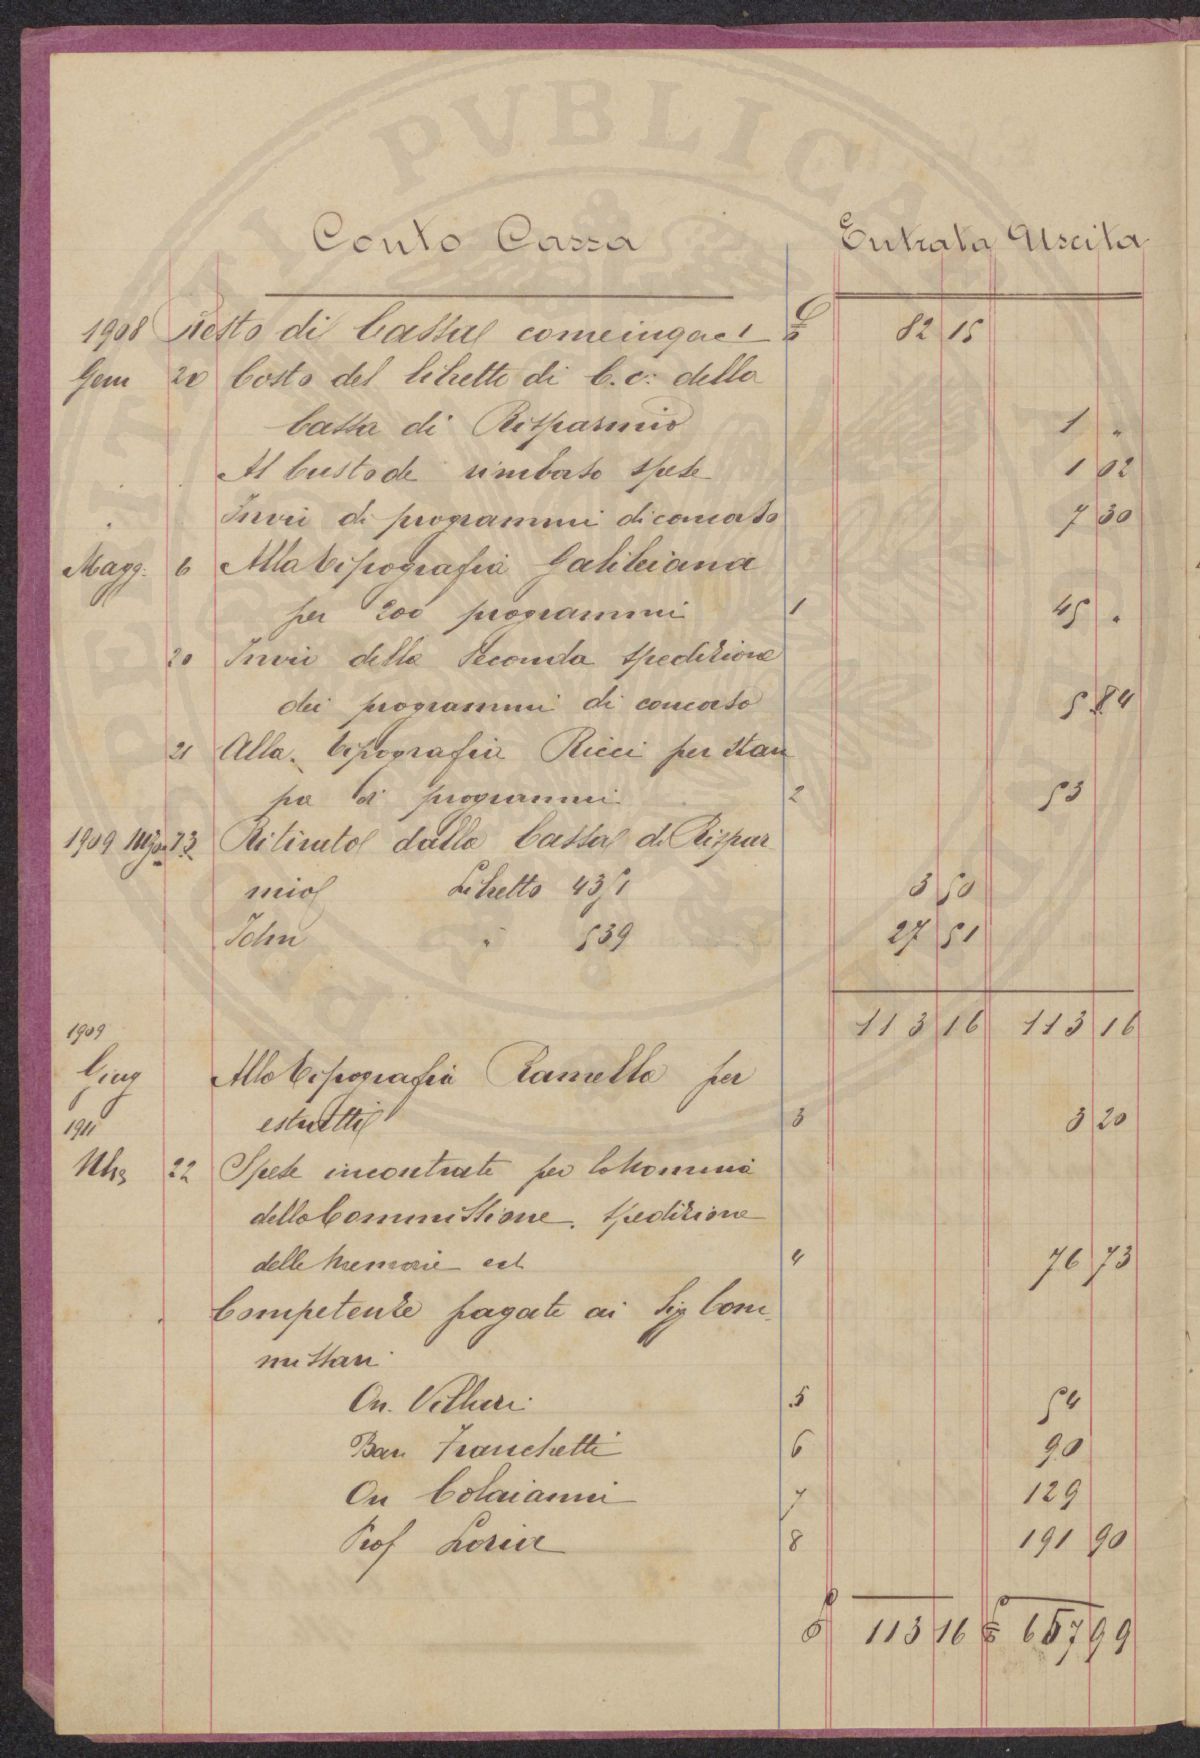 PVBLICA
Conto Cassa Entrata Uscita
1908 Resto di Cassa come in pag 1 £ 82 15
Genn 20 Costo del libretto di C.c. della
Cassa di Risparmio 1 "
Al Custode rimborso spese 1 02
Invii di programmi di concorso 7 30
Magg. 6 Alla tipografia Galileiana
per 200 programmi 1 45 "
20 Invii della seconda spedizione
dei programmi di concorso 5 84
21 Alla tipografia Ricci per stam
pa di programmi 2 53
1909 13 Ritirato dalla Cassa di Rispar
mio Libretto 4351 3 50
Idem " 539 27 51
113 16 113 16
1909
Giug Alla tipografia Ramella per
estratti 3 3 20
1911
22 Spese incontrate per la nomina
della Commissione, spedizione
delle memorie ect 4 76 73
Competenze pagate ai Sig Com
missari
On. Villari 5 54
Bar Franchetti 6 90
On Colaianni 7 129
Prof Loria 8 191 90
£ 113 16 £ 657 99